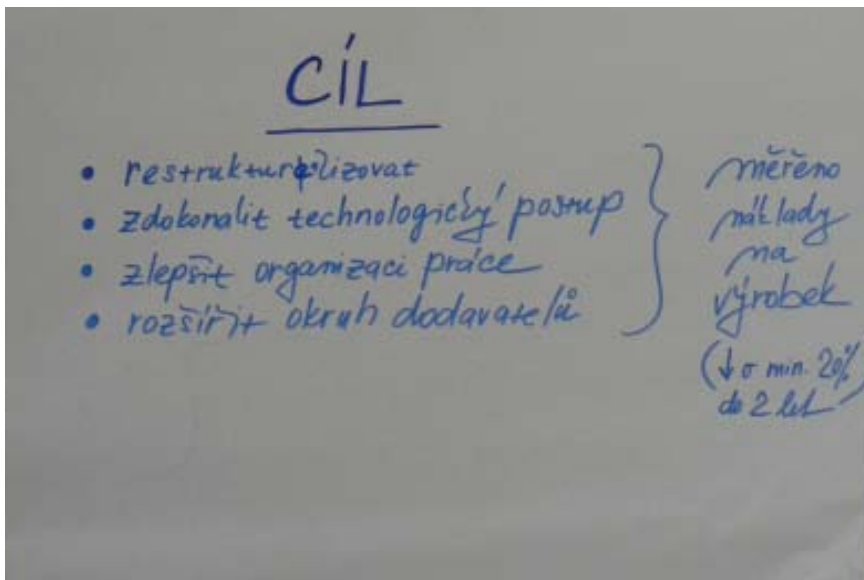 CÍL
• restrukturalizovat
• zdokonalit technologický postup
• zlepšit organizaci práce
• rozšířit okruh dodavatelů
měřeno
náklady
na
výrobek
(↓ o min. 20%
do 2 let)